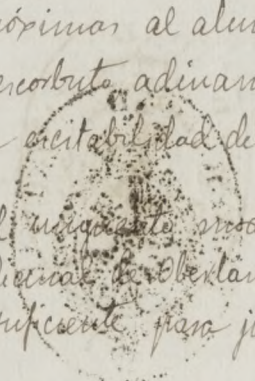 óximas al alu
escorbuto adinam
escitabilidad de
unguento
de Oberlan
suficiente para j